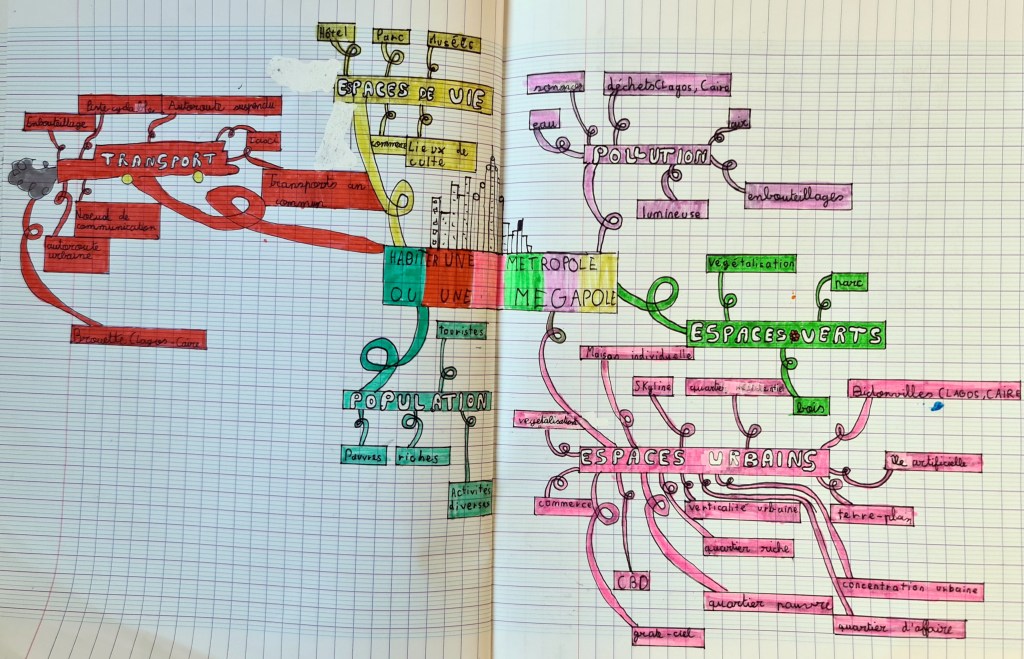 Hôtel
Parc
Musées
ESPACES DE VIE
commerce
Lieux de
culte
Embouteillage
Autoroute suspendu
TRANSPORT
Transports en
commun
Noeud de
communication
autoroute
urbaine
Brouette (Lagos-Caire
HABITER UNE METROPOLE
OU UNE MEGAPOLE
touristes
POPULATION
Pauvres
riches
Activités
diverses
sonore
déchets(Lagos, Caire
eau
air
POLLUTION
lumineuse
embouteillages
végétalisation
parc
ESPACES VERTS
bois
Maison individuelle
Skyline
Bidonvilles (LAGOS, CAIRE
vegetalisation
ESPACES URBAINS
île artificielle
commerce
verticalité urbaine
terre-plain
quartier riche
CBD
concentration urbaine
quartier pauvre
quartier d'affaire
grak-ciel